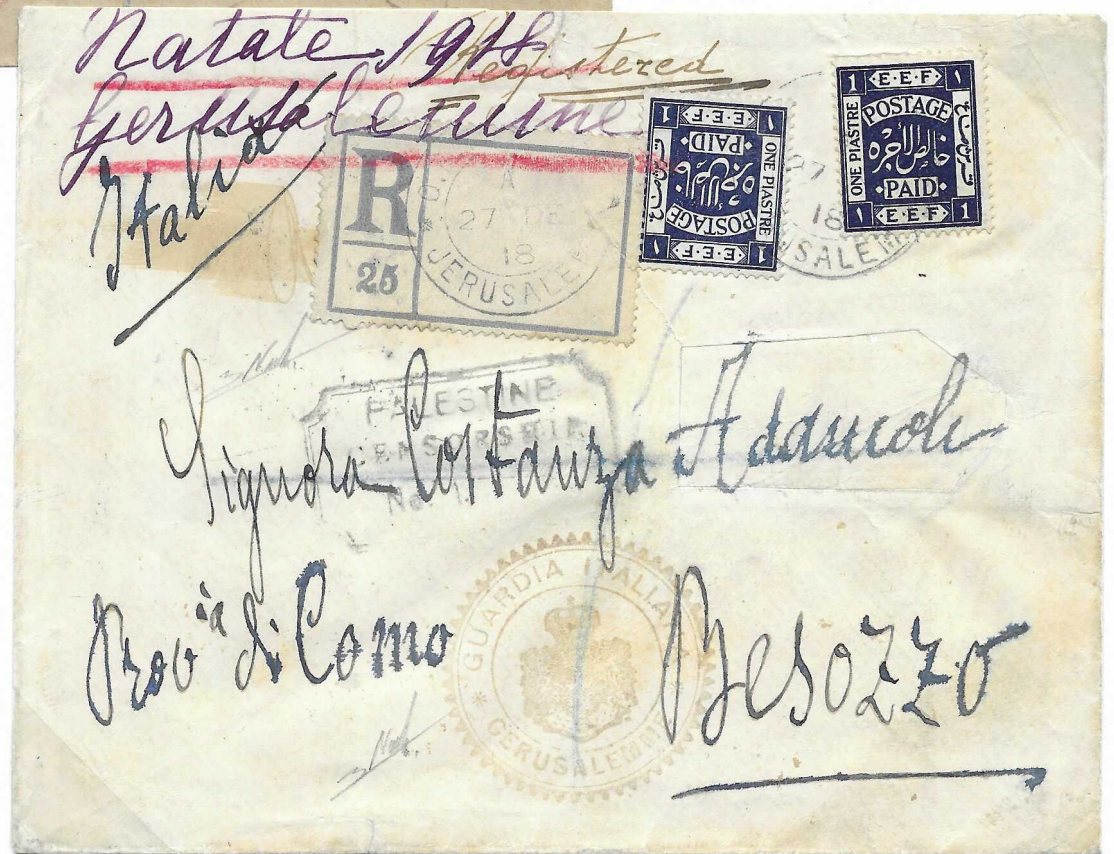 Natale 1918
Registered
Gerusalemme
Italia
R
25
27 DE
18
JERUSALEM
1 E.E.F ١
POSTAGE
خالص الاجره
PAID
ONE PIASTRE
١ E.E.F 1
1 E.E.F ١
POSTAGE
خالص الاجره
PAID
ONE PIASTRE
١ E.E.F 1
27
18
USALEM
PALESTINE
CENSORSHIP
No.
Signora Costanza Adamoli
Provia di Como
Besozzo
* GUARDIA ITALIANA *
GERUSALEMME